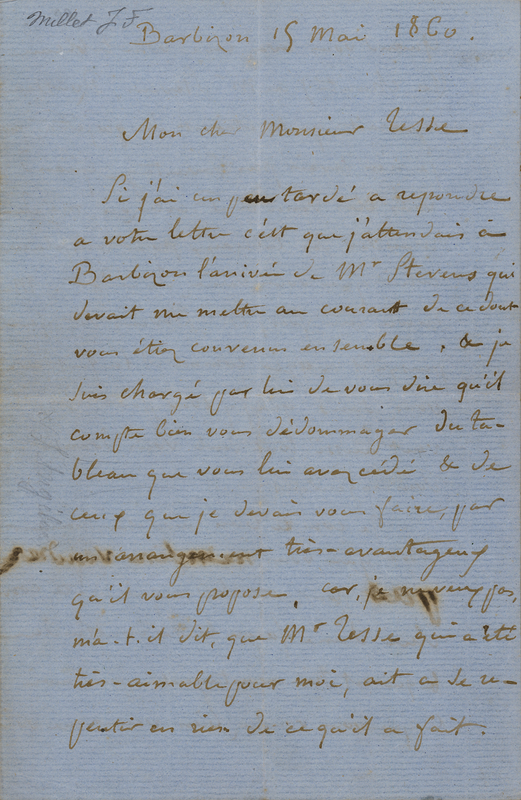 Millet J. F.
Barbizon 15 Mai 1860.
Mon cher Monsieur Tesse
Si j'ai un peu tardé a repondre
a votre lettre c'est que j'attendais à
Barbizon l'arrivée de Mr Stevens qui
devait me mettre au courant de ce dont
vous étiez convenus ensemble, & je
suis chargé par lui de vous dire qu'il
compte bien vous dédommager du ta-
bleau que vous lui avez cédé & de
ceux que je devais vous faire, par
un arrangement très-avantageux
qu'il vous propose, car, je ne veux pas,
m'a-t-il dit, que Mr Tesse qui a été
très-aimable pour moi, ait a se re-
pentir en rien de ce qu'il a fait.